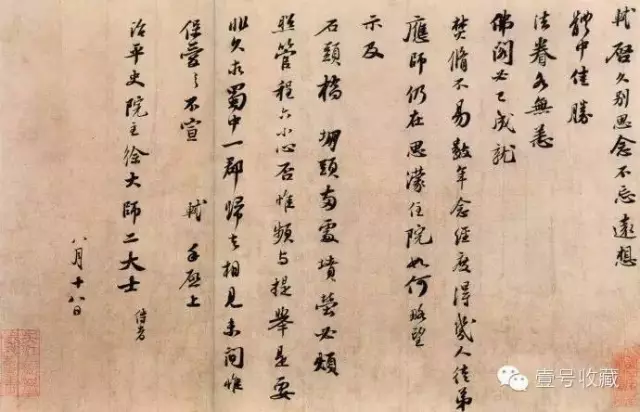 轼启久别思念不忘远想
體中佳勝
法眷各無恙
佛閣必已成就
焚脩不易數年念經度得幾人徒弟
應師仍在思濛住院如何略望
示及
石頭橋堋頭兩處墳塋必煩
照管程六小心否惟頻与提舉是要
非久求蜀中一郡歸去相見未間惟
保愛之不宣　軾手啟上
治平史院主徐大師二大士　侍者
八月十八日
壹号收藏